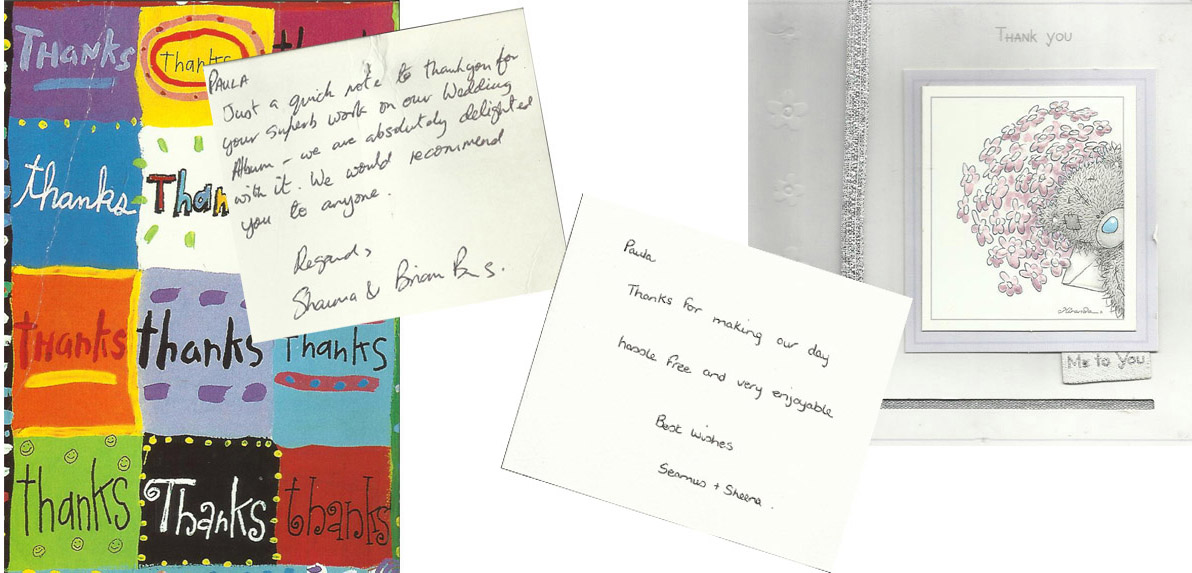 Thanks
Thanks
thanks
Than
Thanks
thanks
Thanks
thanks
Thanks
thanks
PAULA
Just a quick note to thankyou for
your superb work on our Wedding
Album - we are absolutely delighted
with it. We would recommend
you to anyone.
Regards,
Shauna & Brian
Paula
Thanks for making our day
hassle free and very enjoyable
Best wishes
Seamus + Sheena.
Thank you
Me to You